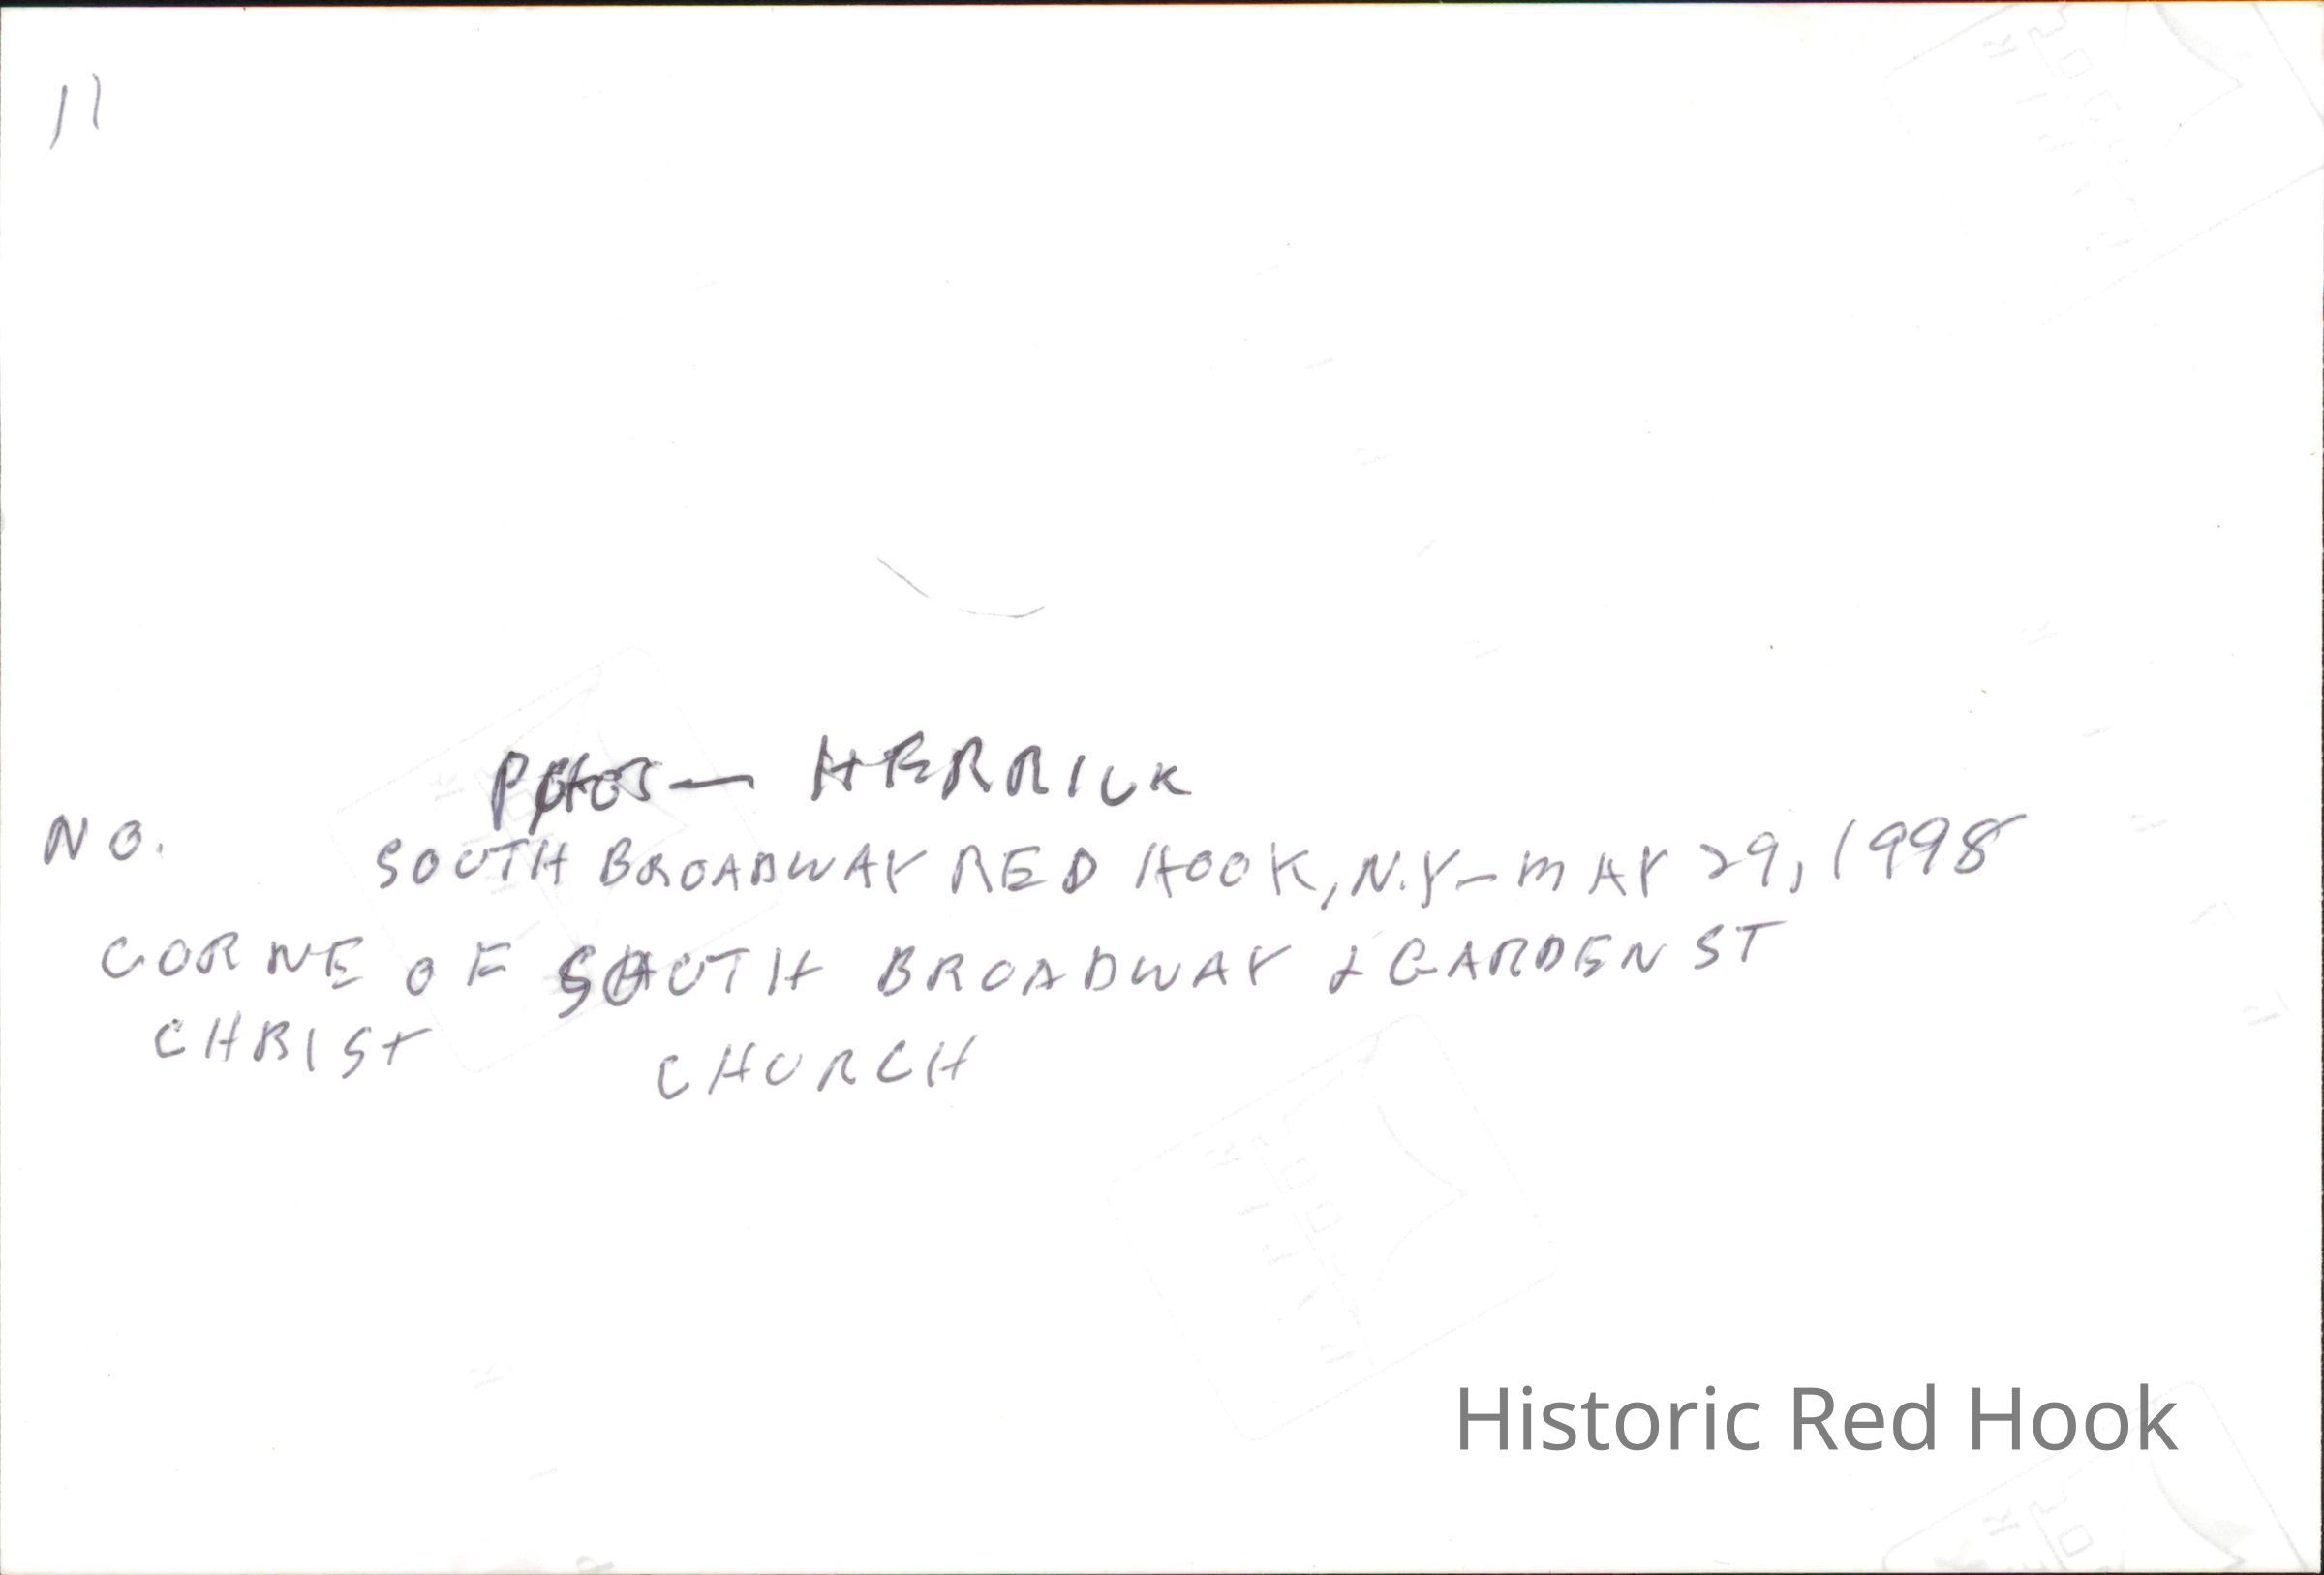 11
PHOTOS — HERRICK
NO. SOUTH BROADWAY RED HOOK, N.Y – MAY 29, 1998
CORNE OF SOUTH BROADWAY & GARDEN ST
CHRIST CHURCH
Historic Red Hook